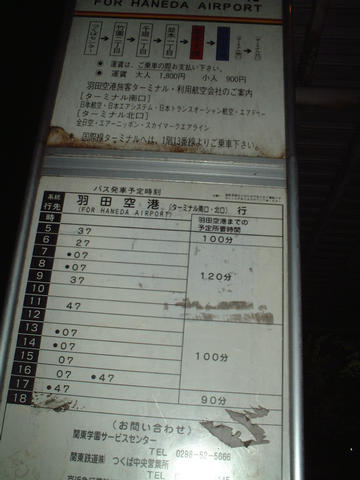 FOR HANEDA AIRPORT
つくばセンター → 竹園二丁目 → 千現一丁目 → 並木一丁目
● 運賃は、ご乗車の際お支払い下さい。
● 運賃 大人 1,800円 小人 900円
羽田空港旅客ターミナル・利用航空会社のご案内
[ターミナル南口]
日本航空・日本エアシステム・日本トランスオーシャン航空・エアドゥー
[ターミナル北口]
全日空・エアーニッポン・スカイマークエアライン
● 国際線ターミナルへは、1階13番線よりご乗車下さい。
バス発車予定時刻
系統
行先
羽田空港 (ターミナル南口・北口) 行
(FOR HANEDA AIRPORT)
時
羽田空港までの
予定所要時間
5 37 100分
6 27
7 ●07
8 ●07
9 37 120分
10
11 47
12
13 ●07
14 ●07
15 07 100分
16 07 ●47
17 ●47 90分
18
(お問い合わせ)
関東学園サービスセンター
TEL 0298-52-5666
関東鉄道㈱ つくば中央営業所
TEL